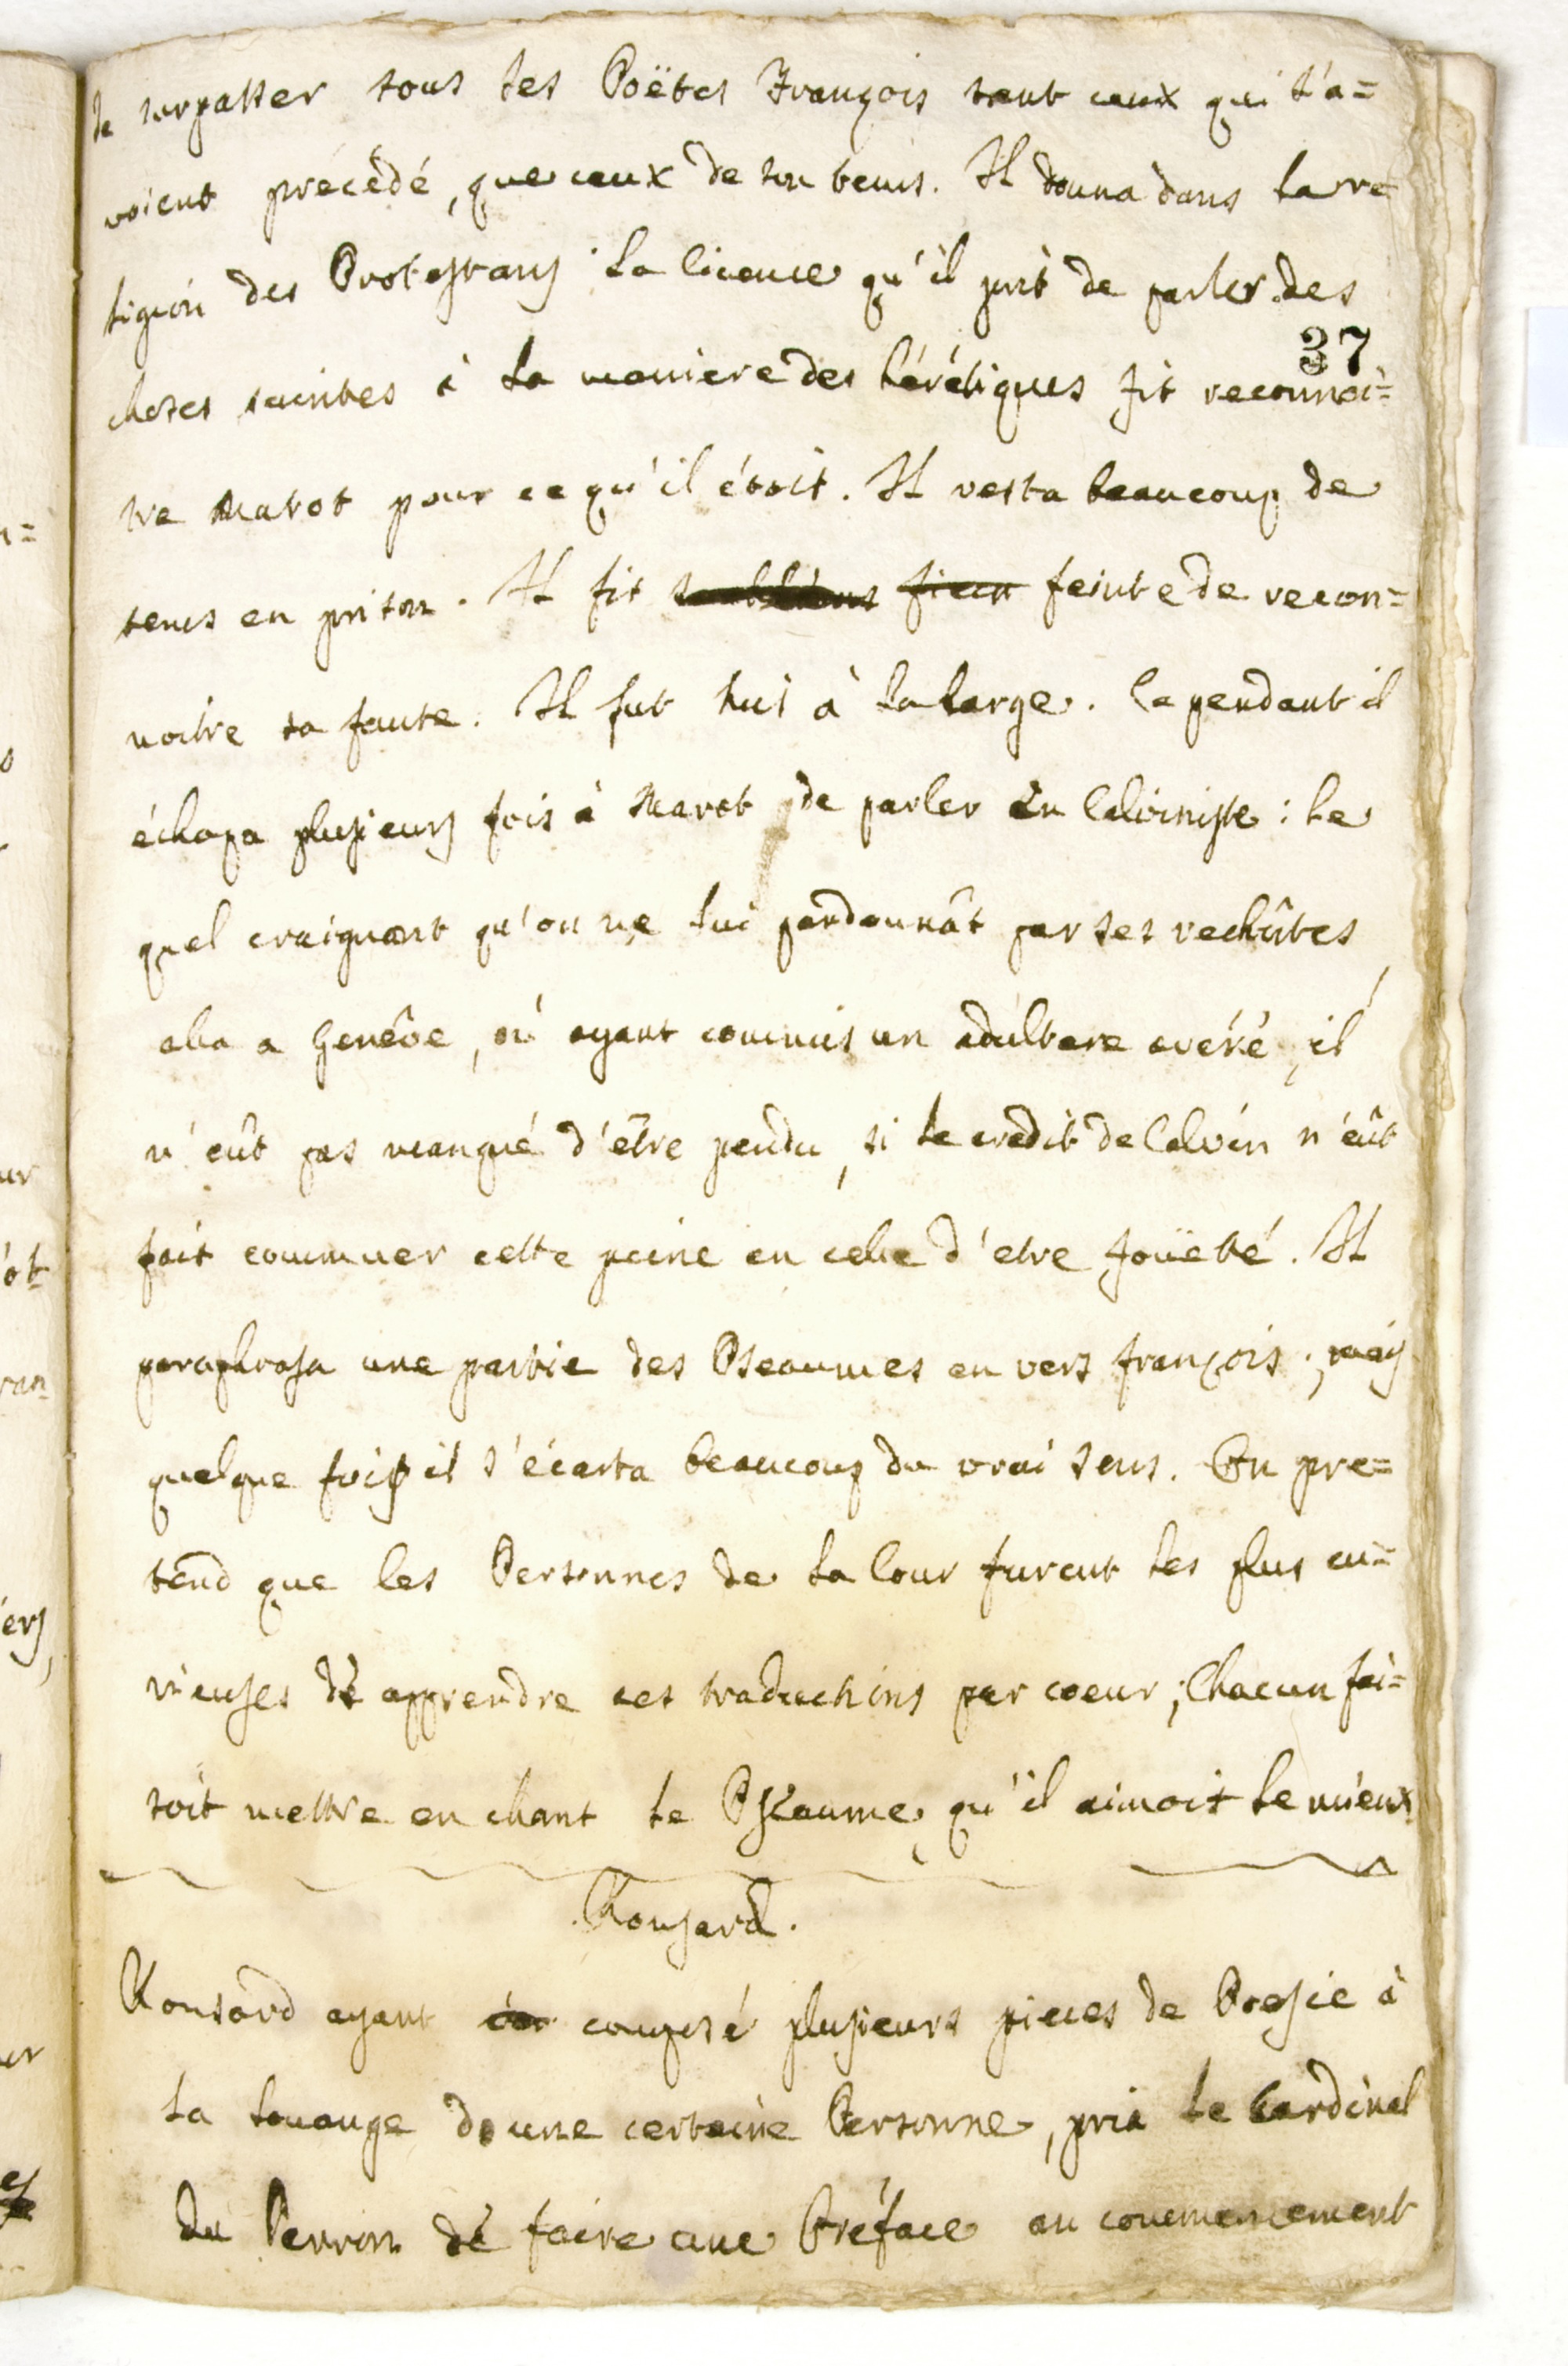 de surpasser tous les Poëtes François tant ceux qui l'a=
voient précédé, que ceux de son tems. Il donna dans la re=
ligion des Protestans la licence qu'il prit de parler des
37
choses saintes à la maniere des hérétiques fit reconnoi=
tre Marot pour ce qu'il étoit. Il resta beaucoup de
tems en prison. Il fit feinte de recon=
noitre sa faute. Il fut mis à la large. Ce pendant il
échapa plusieurs fois à Marot de parler en Calviniste : le
quel craignant qu'on ne lui pardonnât par ses rechûtes
alla a Genêve, où ayant commis un adultere avéré, il
n'eût pas manqué d'être pendu, si le credit de Calvin n'eût
fait commuer cette peine en celle d'etre foüeté. Il
paraphrasa une partie des Pseaumes en vers françois ; mais
quelque fois il s'écarta beaucoup du vrai sens. On pre=
tend que les Personnes de la Cour furent les plus cu=
rieuses de apprendre ces traductions par coeur ; Chacun fai=
soit mettre en chant le Pseaume qu'il aimoit le mieux
Ronsard.
Ronsard ayant composé plusieurs pieces de Poesie à
la louange de une certaine Personne, pria le Cardinal
du Perron de faire une Préface au commencement